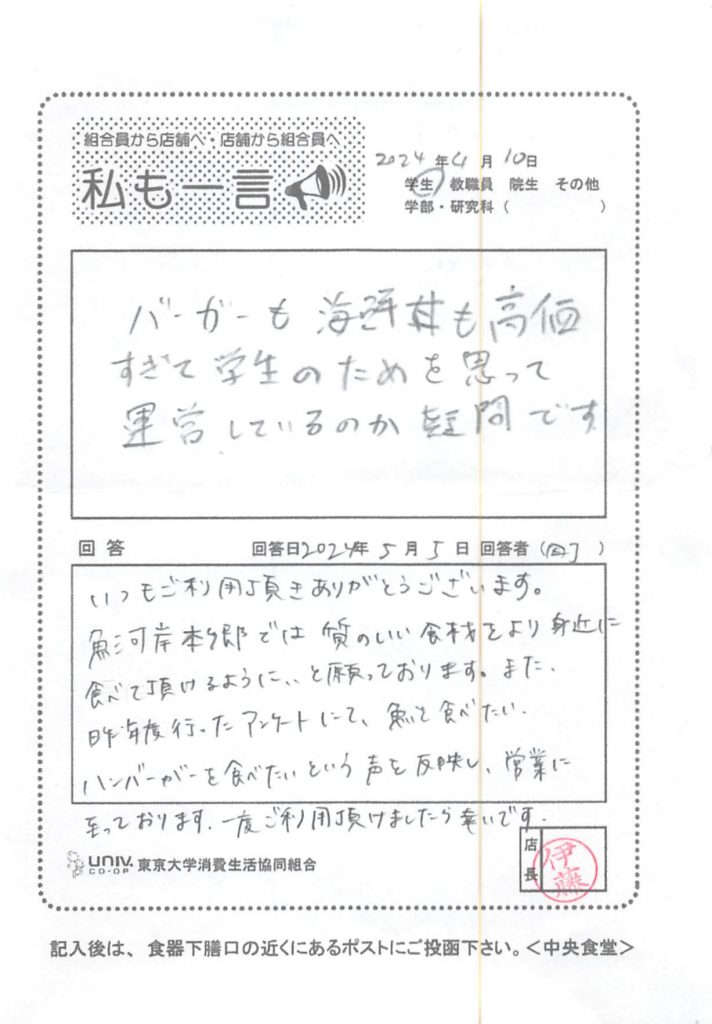 組合員から店舗へ・店舗から組合員へ
私も一言
2024年4月10日
学生 教職員 院生 その他
学部・研究科（ ）
バーガーも海鮮丼も高価
すぎて学生のためを思って
運営しているのか疑問です
回答 回答日2024年5月5日 回答者（ ）
いつもご利用頂きありがとうございます。
魚河岸本郷では質のいい食材をより身近に
食べて頂けるように、、と願っております。また、
昨年度行ったアンケートにて、魚を食べたい、
ハンバーガーを食べたいという声を反映し、営業に
至っております。一度ご利用頂けましたら幸いです。
UNIV. CO-OP 東京大学消費生活協同組合
店長 伊藤
記入後は、食器下膳口の近くにあるポストにご投函下さい。＜中央食堂＞